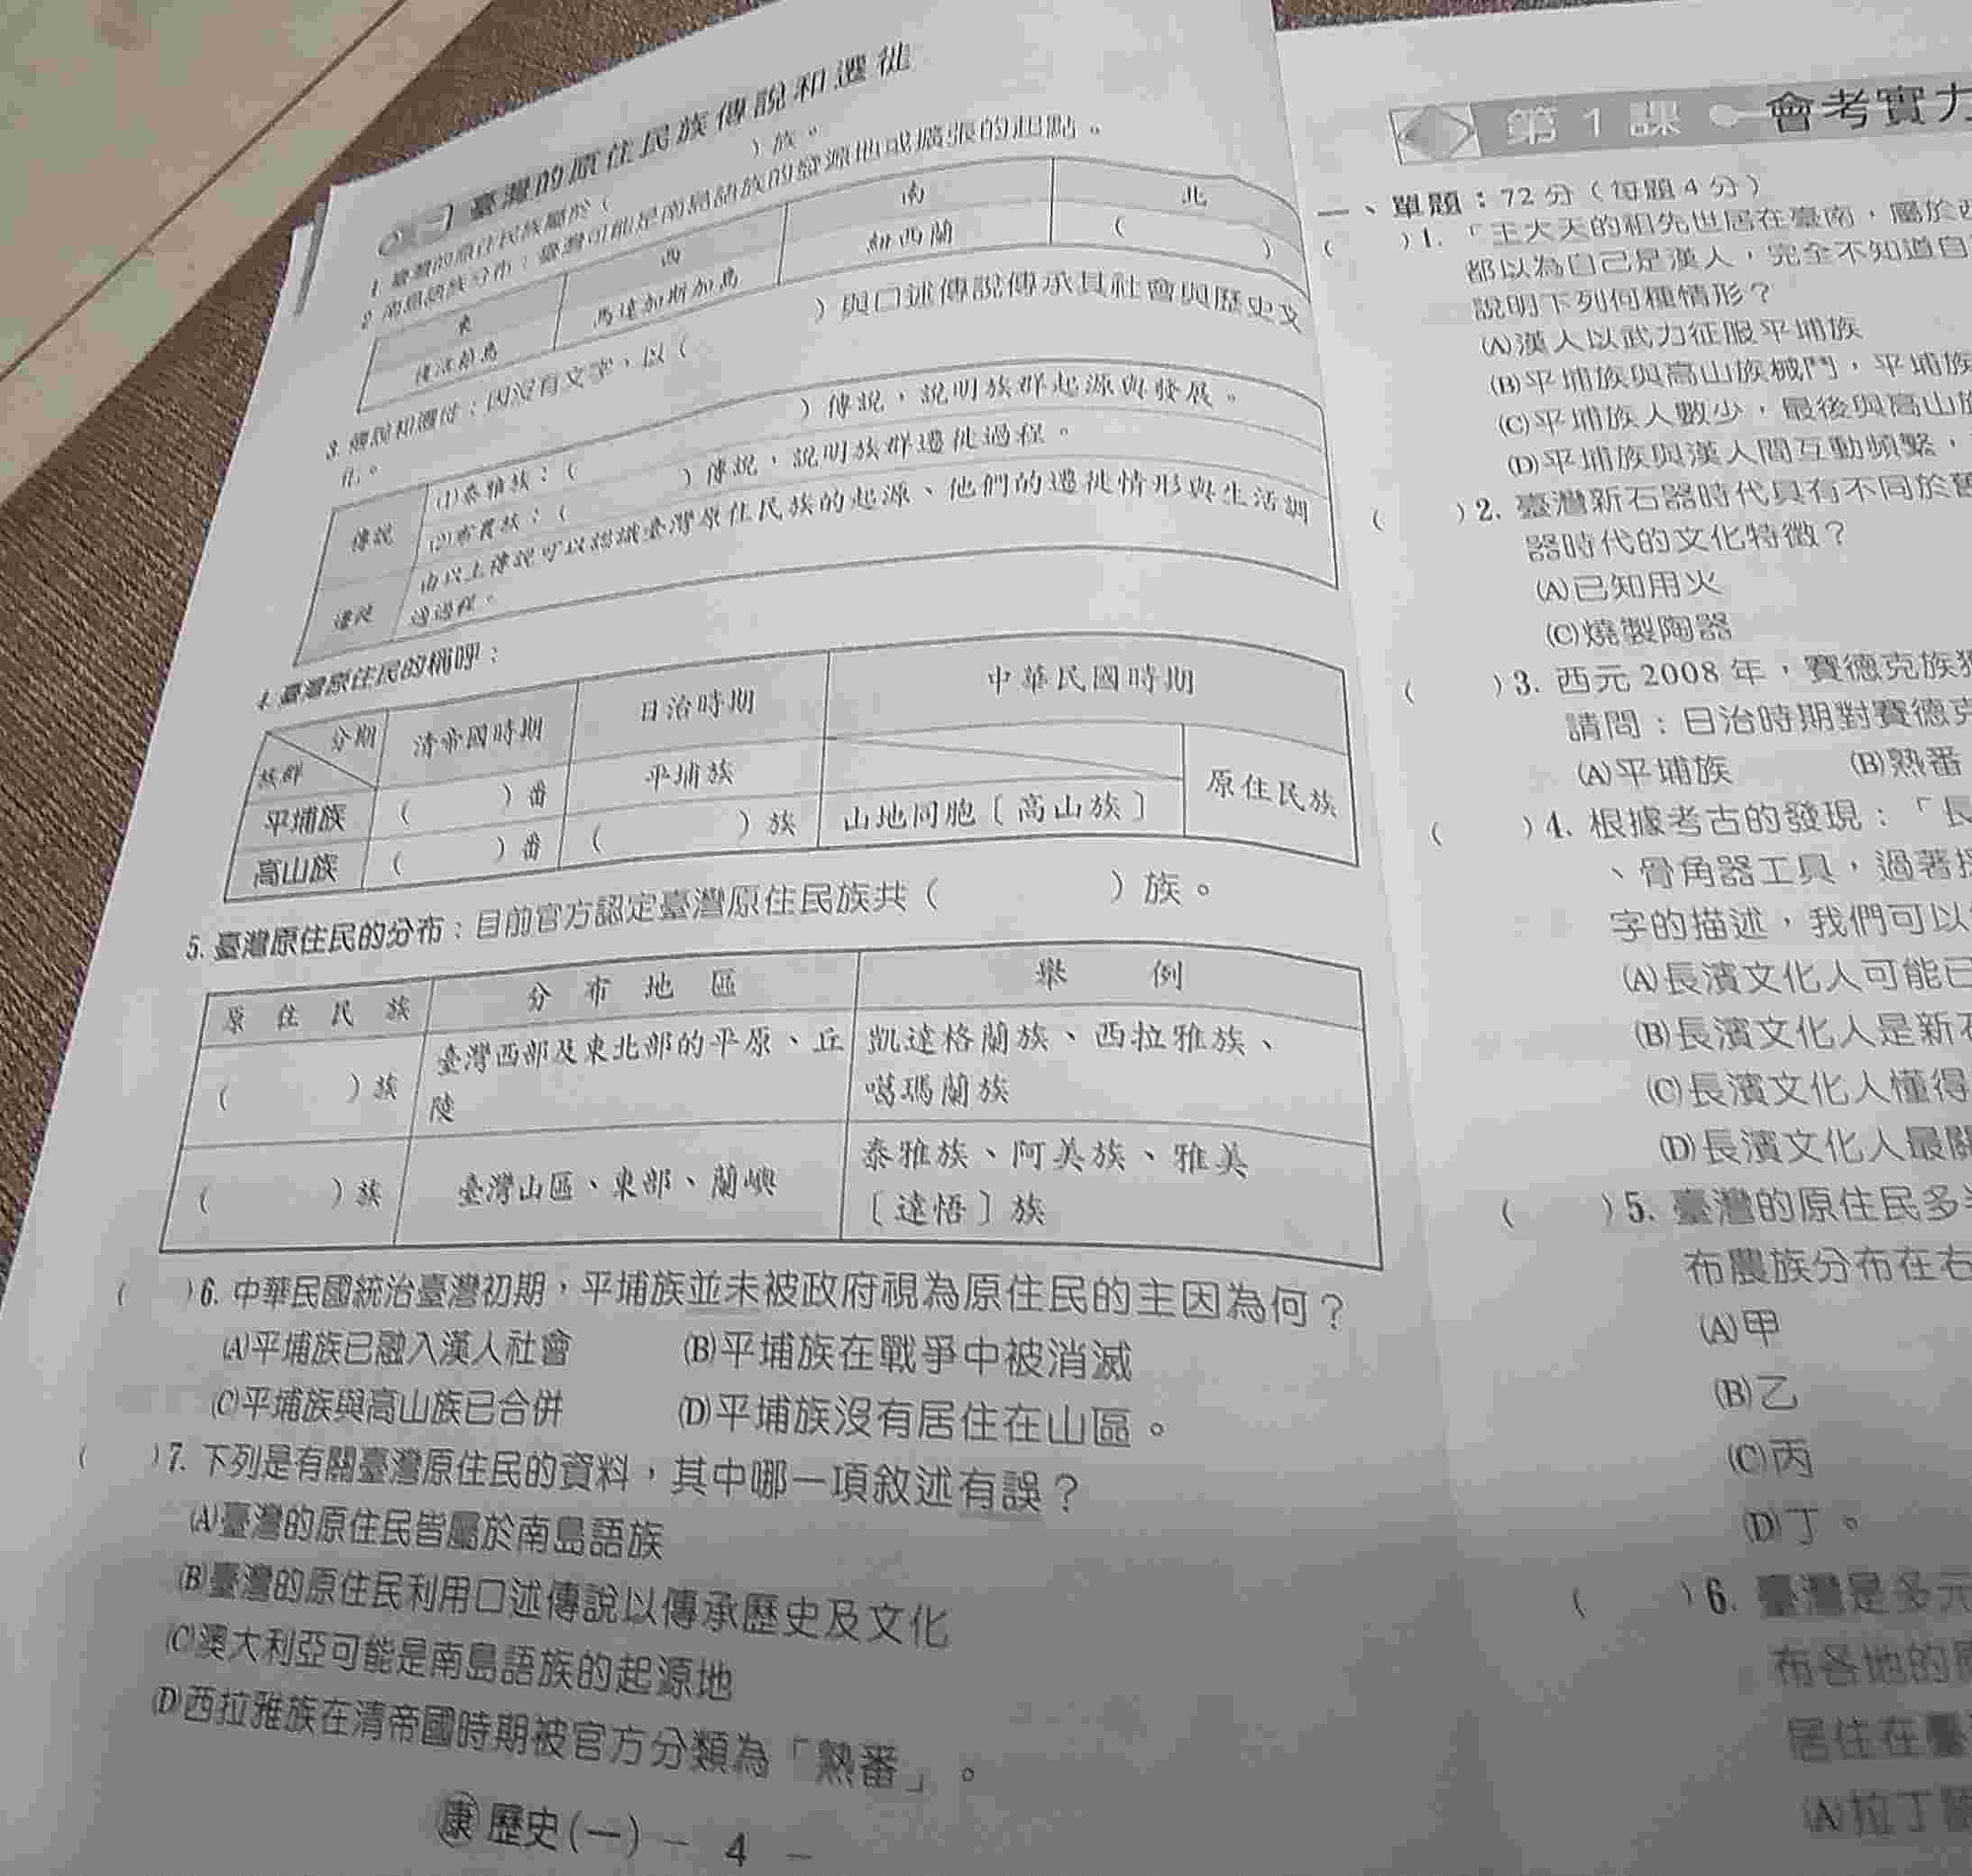 臺灣的原住民族傳說和遷徙
1. 臺灣的原住民族屬於( )族。
2. 南島語族分布：臺灣可能是南島語族的發源地或擴張的起點。
東 西 南 北
復活節島 馬達加斯加島 紐西蘭 ( )
3. 傳說和遷徙：因沒有文字，以( )與口述傳說傳承其社會與歷史文
化。
傳說 (1)泰雅族：( )傳說，說明族群起源與發展。
(2)布農族：( )傳說，說明族群遷徙過程。
遷徙 由以上傳說可以認識臺灣原住民族的起源、他們的遷徙情形與生活調
適過程。
4. 臺灣原住民的稱呼：
分期 清帝國時期 日治時期 中華民國時期
族群
平埔族 ( )番 平埔族 原住民族
高山族 ( )番 ( )族 山地同胞〔高山族〕
5. 臺灣原住民的分布：目前官方認定臺灣原住民族共( )族。
原住民族 分布地區 舉例
( )族 臺灣西部及東北部的平原、丘
陵 凱達格蘭族、西拉雅族、
噶瑪蘭族
( )族 臺灣山區、東部、蘭嶼 泰雅族、阿美族、雅美
〔達悟〕族
( )6. 中華民國統治臺灣初期，平埔族並未被政府視為原住民的主因為何？
(A)平埔族已融入漢人社會 (B)平埔族在戰爭中被消滅
(C)平埔族與高山族已合併 (D)平埔族沒有居住在山區。
( )7. 下列是有關臺灣原住民的資料，其中哪一項敘述有誤？
(A)臺灣的原住民皆屬於南島語族
(B)臺灣的原住民利用口述傳說以傳承歷史及文化
(C)澳大利亞可能是南島語族的起源地
(D)西拉雅族在清帝國時期被官方分類為「熟番」。
康 歷史(一) － 4 －
第1課 會考實力
一、單題：72分（每題4分）
( )1. 「王大天的祖先世居在臺南，屬於
都以為自己是漢人，完全不知道自
說明下列何種情形？
(A)漢人以武力征服平埔族
(B)平埔族與高山族械鬥，平埔族
(C)平埔族人數少，最後與高山
(D)平埔族與漢人間互動頻繁，
( )2. 臺灣新石器時代具有不同於舊
器時代的文化特徵？
(A)已知用火
(C)燒製陶器
( )3. 西元2008年，賽德克族
請問：日治時期對賽德克
(A)平埔族 (B)熟番
( )4. 根據考古的發現：「長
、骨角器工具，過著
字的描述，我們可以
(A)長濱文化人可能已
(B)長濱文化人是新
(C)長濱文化人懂得
(D)長濱文化人最
( )5. 臺灣的原住民多
布農族分布在右
(A)甲
(B)乙
(C)丙
(D)丁。
( )6. 臺灣是多元
布各地的
居住在臺
(A)拉丁